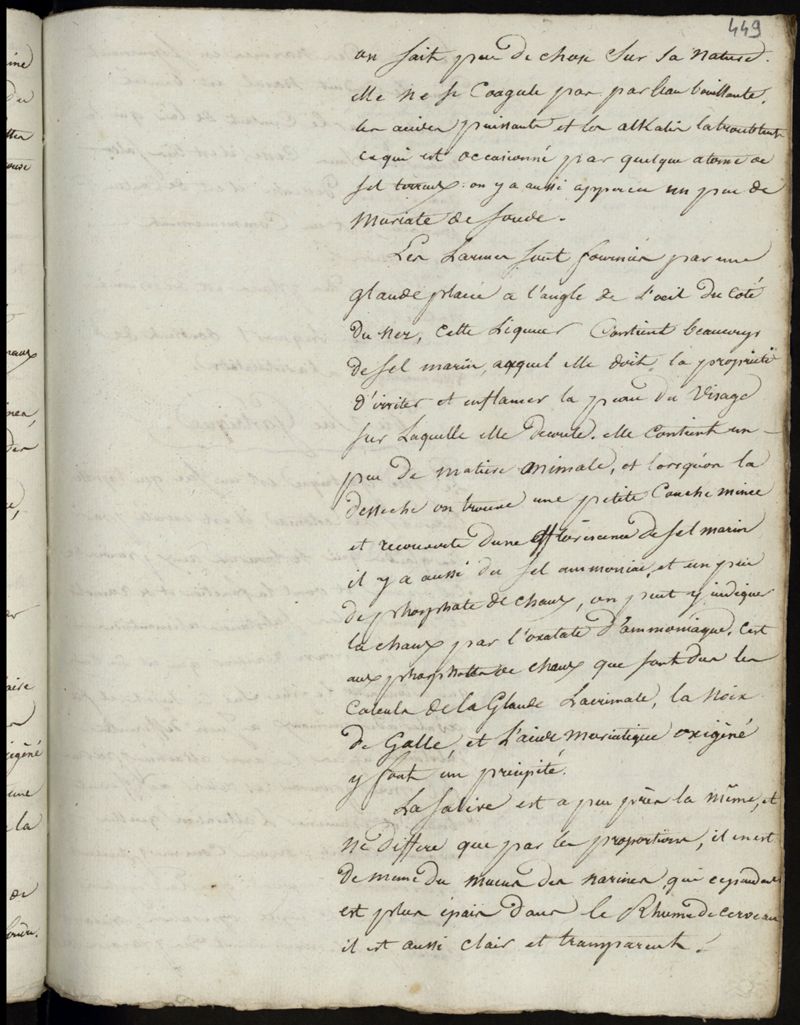 449
on sait peu de chose sur sa nature.
elle ne se Coagule pas par l'eau bouillante,
les acides puissants et les alkalis la troublent
ce qui est occasionné par quelque atome de
sel terreux. on y a aussi apperçu un peu de
Muriate de soude.
Les Larmes sont fournies par une
glande placée a l'angle de L'oeil du Coté
du nez, cette Liqueur Contient beaucoup
de sel marin, auquel elle doit la propriété
d'irriter et enflamer la peau du Visage
sur Laquelle elle decoule. elle contient un
peu de matiere animale, et lorsqu'on la
desseche on trouve une petite Couche mince
et recouverte d'une efflorescence de sel marin
il y a aussi du sel ammoniac, et un peu
de phosphate de chaux, on peut y indiquer
la chaux par l'oxalate d'ammoniaque. C'est
aux phosphattes de chaux que sont dus les
Calculs de la Glande Lacrimale, la Noix
de Galle et L'acide Muriatique oxigéné
y font un précipité.
La Salive est a peu près la même, et
ne differe que par les proportions, il en est
de meme du mucus des narines, qui cependant
est plus épais dans le Rhume de cerveau
il est aussi clair et transparent.
ine
du
naux
oxigéné
une
la
de